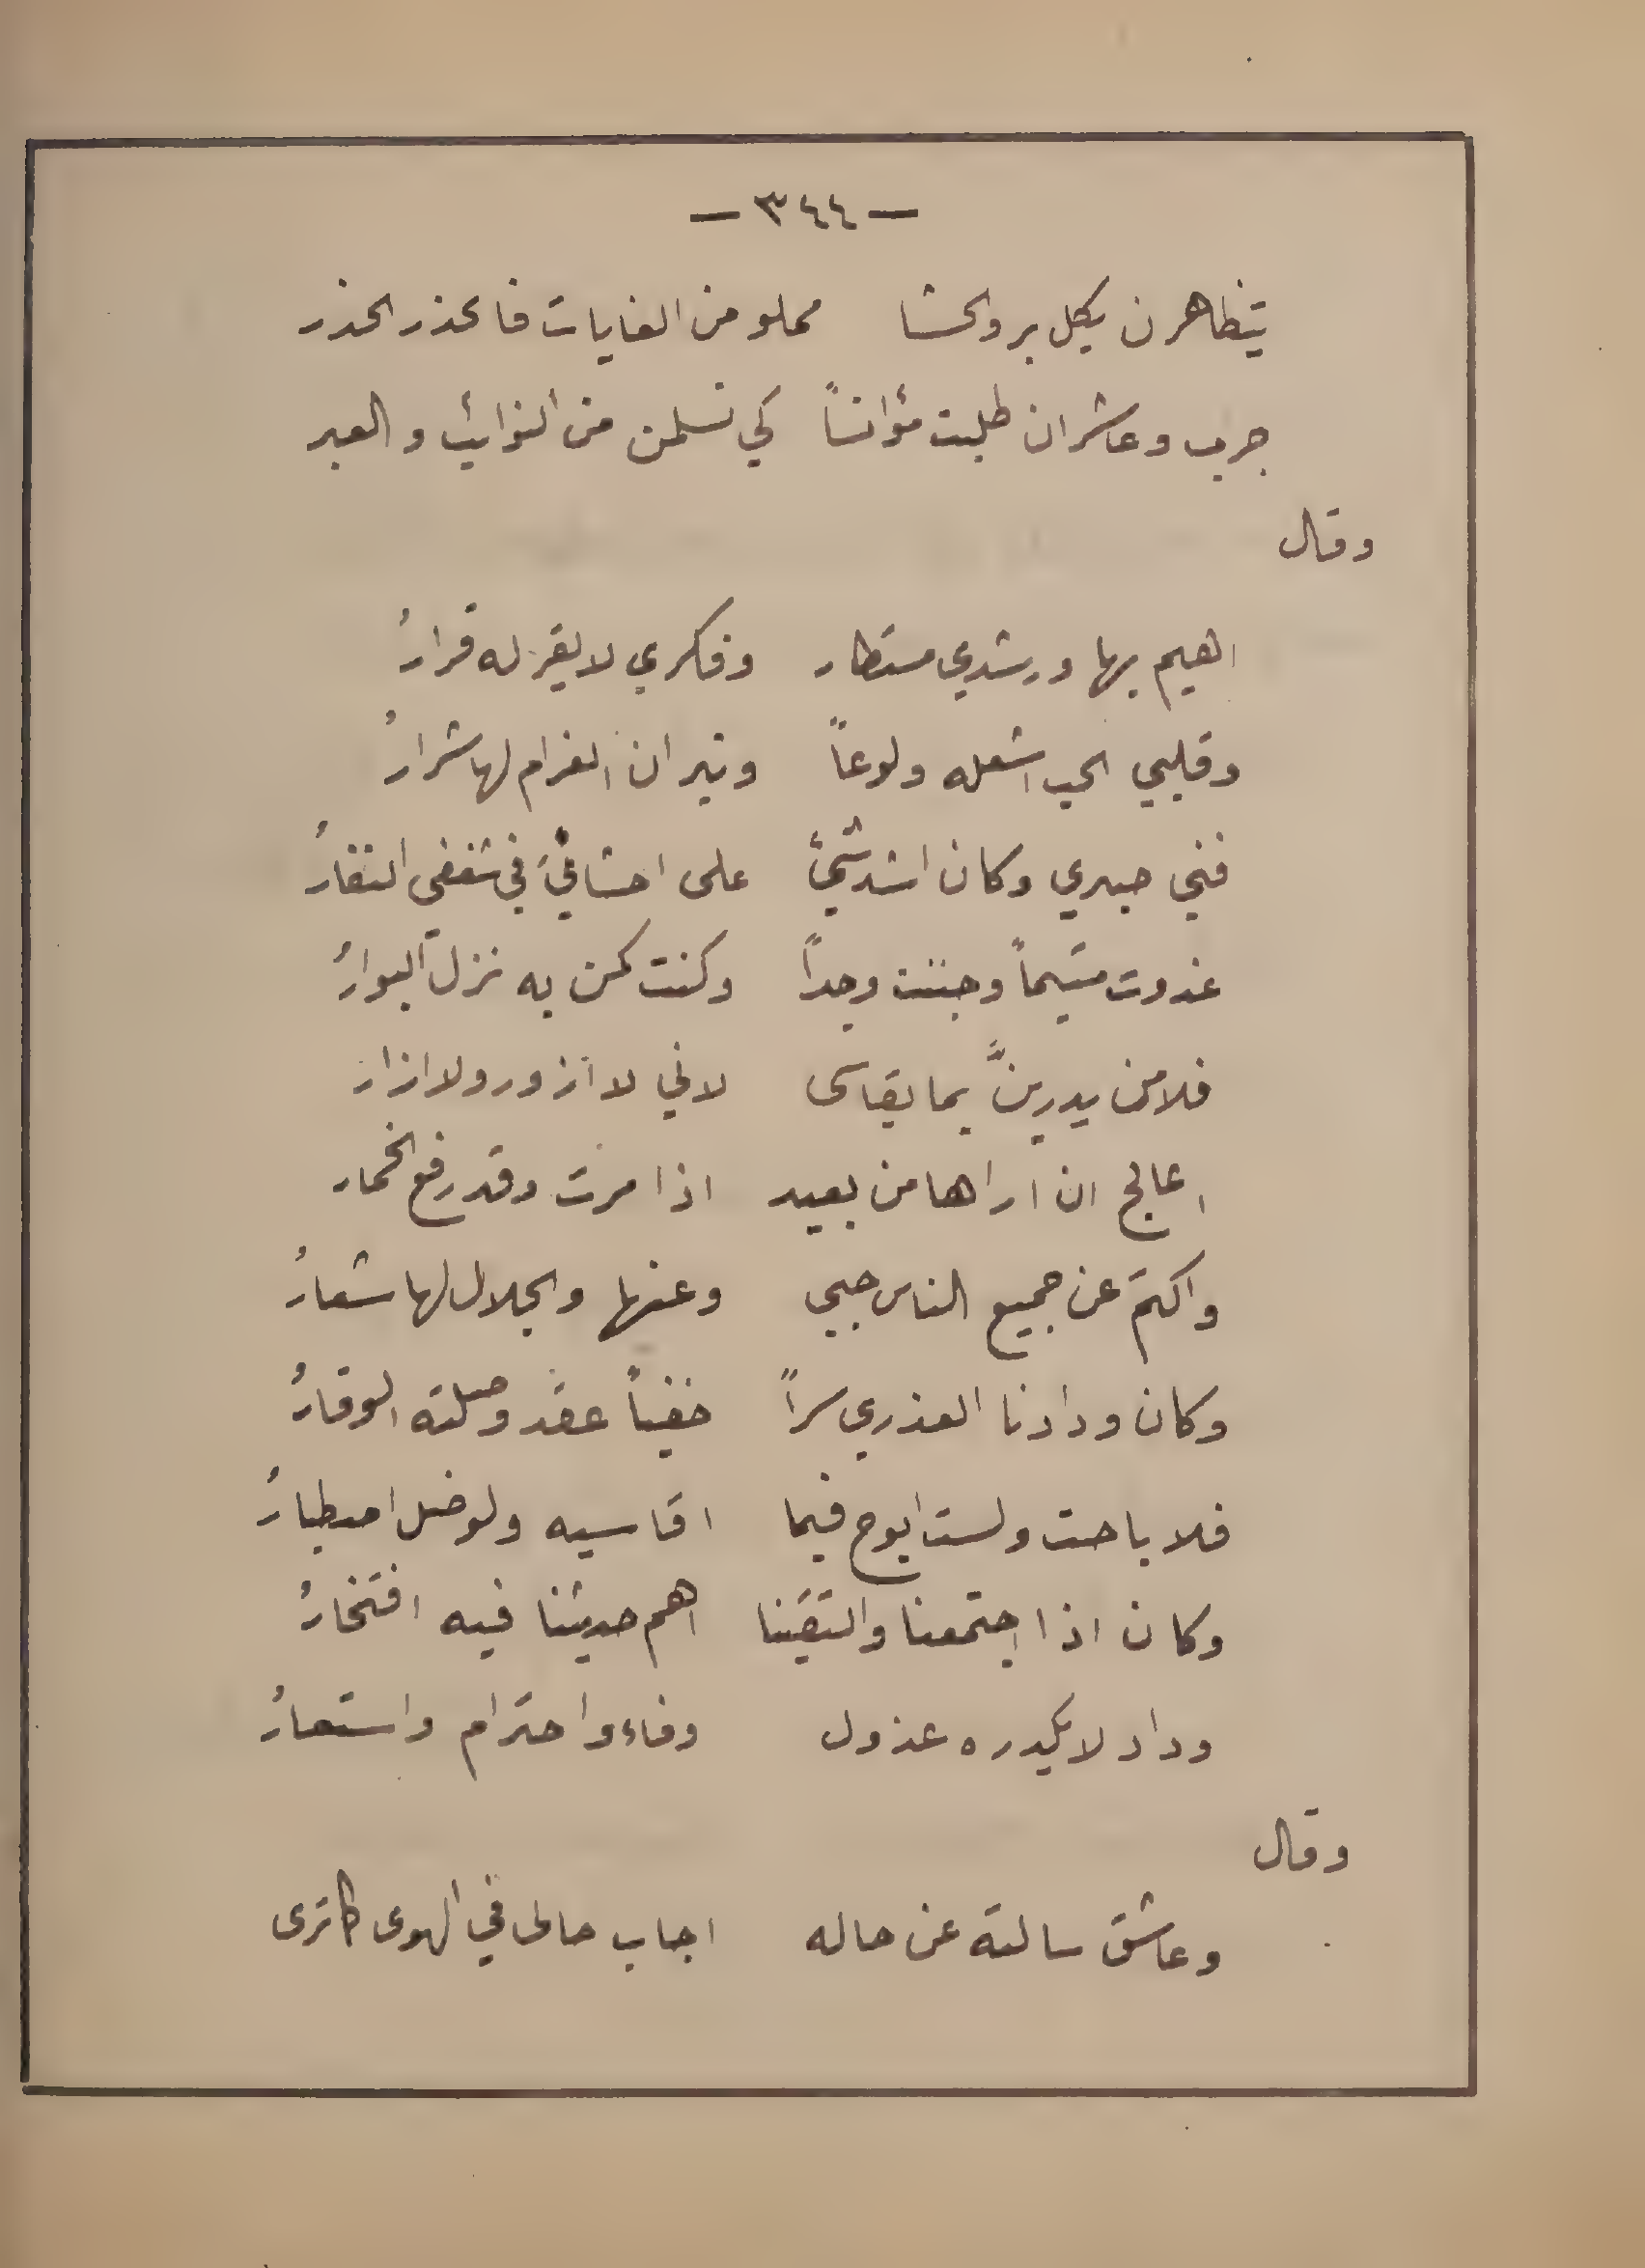 — ٣٤٤ —
يتظاهرن بكل بر والحشا مملو من الغايات فالحذر الحذر
جرب وعاشر ان طلبت مؤانساً كي تسلمن من النوائب والعبر
وقال
اهيم بها ورشدي مستطار وفكري لا يقر له قرارُ
وقلبي الحب اشعله ولوعاً ونيران الغرام لها شرارُ
فني صبري وكان اشد شئٍ على احشائيَ في شغفي النفارُ
غدوت متيماً وجننت وجداً وكنت كمن به نزل البوارُ
فلا من يدرينَّ بما يقاسى لاني لا ازور ولا ازار
اعالج ان اراها من بعيد اذا مرت وقد رفع الخمار
واكتم عن جميع الناس حبي وعنها والجلال لها شعارُ
وكان ودادنا العذري سراً خفيّاً عقد وصلته الوقارُ
فلا باحت ولست ابوح فيما اقاسيه ولو ضل اصطبارُ
وكان اذا اجتمعنا والتقينا اهم حديثنا فيه افتخارُ
وداد لا يكدره عذول وفاء واحترام واستعارُ
وقال
وعاشق سالته عن حاله اجاب حالى في الهوى كما ترى